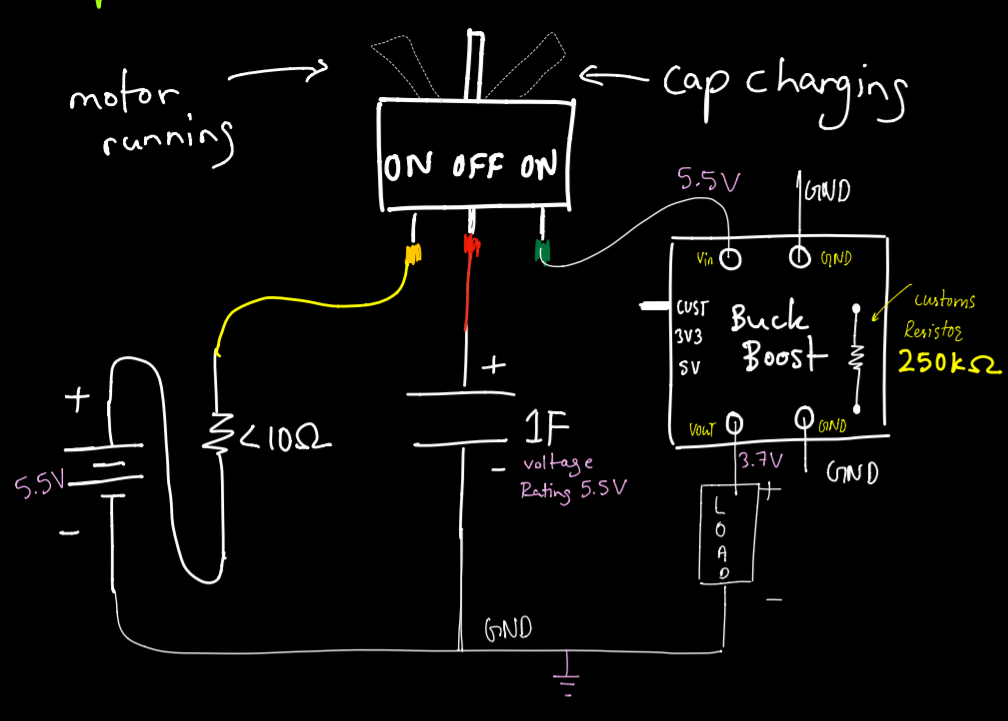 motor
running
cap charging
ON OFF ON
5.5V
GND
Vin
GND
CUST
3V3
5V
Buck
Boost
customs
Resistor
250kΩ
Vout
GND
3.7V
GND
+
L
O
A
D
-
+
5.5V
-
<10Ω
+
1F
-
voltage
Rating 5.5V
GND